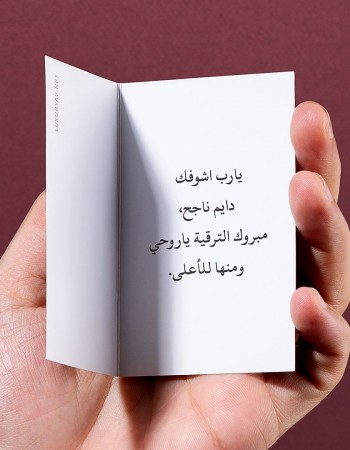 يارب اشوفك
دايم ناجح،
مبروك الترقية ياروحي
ومنها للأعلى.